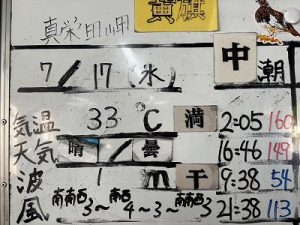 黄旗
真栄田岬
7/17(水) 中潮
気温 33℃ 満 2:05 160
天気 晴/曇 16:46 149
波 1m 干 9:38 54
風 南南西3~南西4~3~南南西3 21:38 113